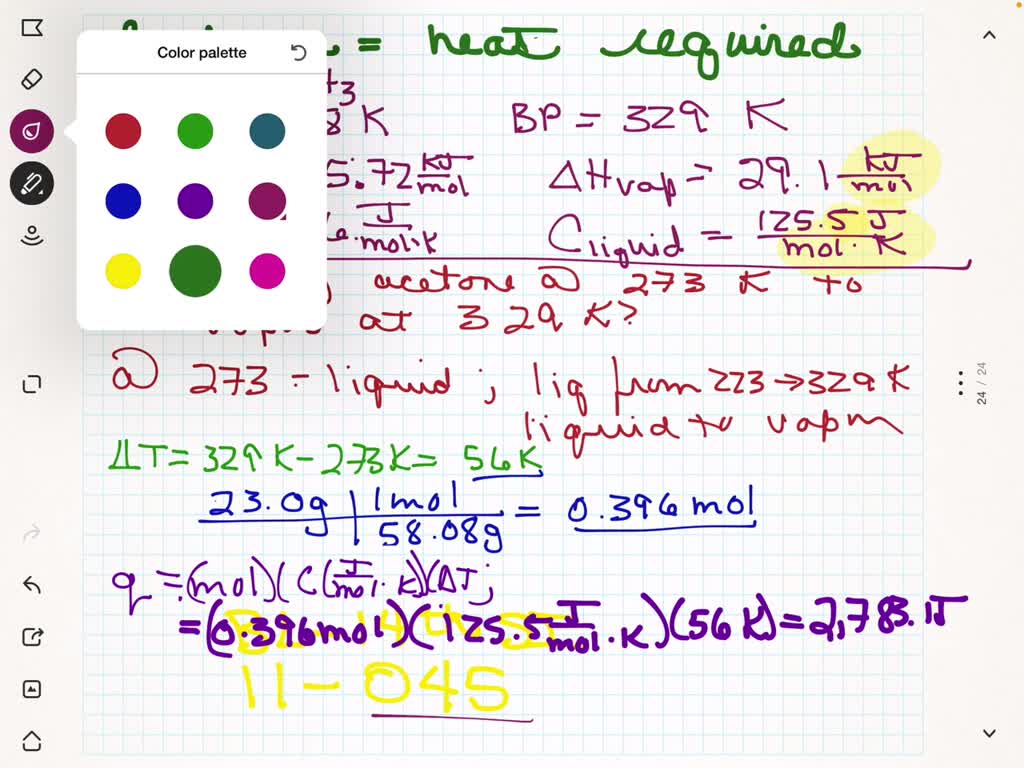 Color palette
= heat required
8 K BP = 329 K
5.72 kJ/mol ΔHvap = 29.1 kJ/mol
J/mol·K Cliquid = 125.5 J/mol·K
acetone @ 273 K to
at 329 K?
@ 273 - liquid; liq from 273→329 K
liquid to vapor
ΔT = 329 K - 273 K = 56 K
23.0g | 1 mol / 58.08g = 0.396 mol
q = (mol)(C(J/mol·K)(ΔT;
= (0.396 mol)(125.5 J/mol·K)(56 K) = 2,783.1J
11-045
24 / 24